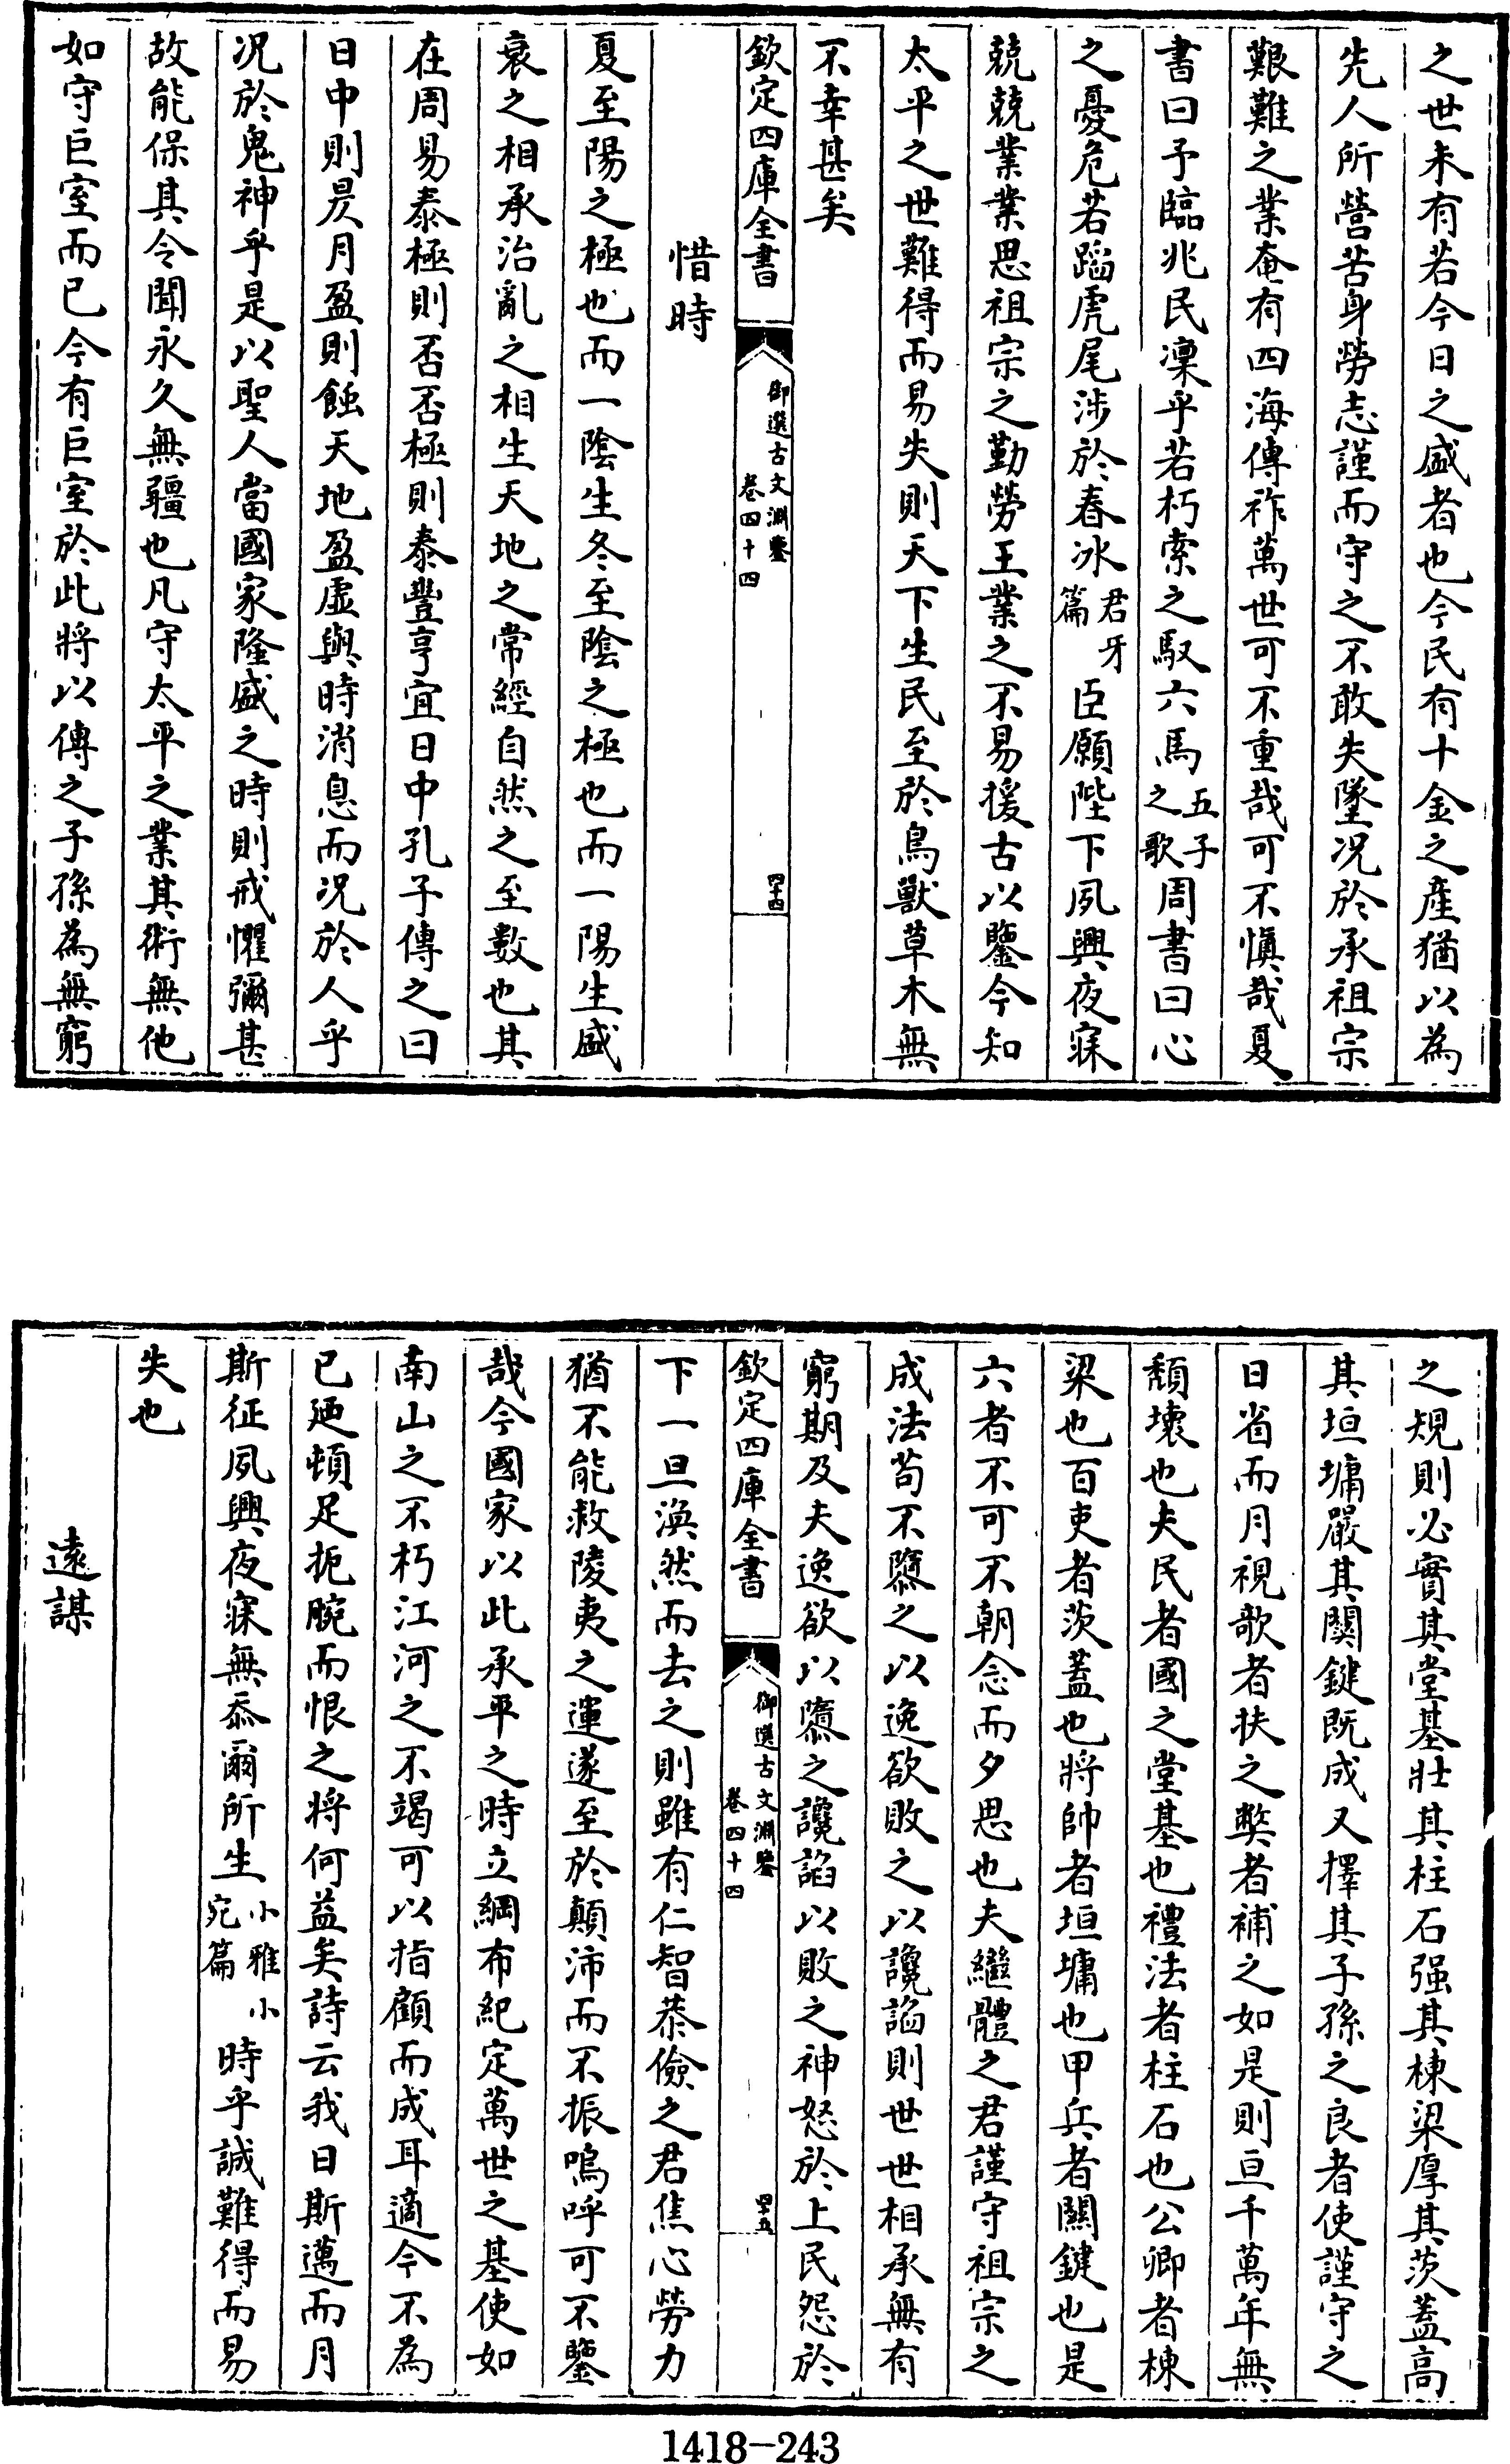 之世未有若今日之盛者也今民有十金之產猶以為
先人所營苦身勞志謹而守之不敢失墜况於承祖宗
艱難之業奄有四海傳祚萬世可不重哉可不慎哉夏
書曰予臨兆民凜乎若朽索之馭六馬五子之歌周書曰心
之憂危若蹈虎尾涉於春冰君牙篇臣願陛下夙興夜寐
兢兢業業思祖宗之勤勞王業之不易援古以鑒今知
太平之世難得而易失則天下生民至於鳥獸草木無
不幸甚矣
欽定四庫全書
御選古文淵鑒
卷四十四
四十四
惜時
夏至陽之極也而一陰生冬至陰之極也而一陽生盛
衰之相承治亂之相生天地之常經自然之至數也其
在周易泰極則否否極則泰豐亨宜日中孔子傳之曰
日中則昃月盈則蝕天地盈虛與時消息而况於人乎
况於鬼神乎是以聖人當國家隆盛之時則戒懼彌甚
故能保其令聞永久無疆也凡守太平之業其術無他
如守巨室而已今有巨室於此將以傳之子孫為無窮
之規則必實其堂基壯其柱石强其棟梁厚其茨蓋高
其垣墉嚴其關鍵既成又擇其子孫之良者使謹守之
日省而月視欹者扶之弊者補之如是則亘千萬年無
頹壞也夫民者國之堂基也禮法者柱石也公卿者棟
梁也百吏者茨蓋也將帥者垣墉也甲兵者關鍵也是
六者不可不朝念而夕思也夫繼體之君謹守祖宗之
成法苟不隳之以逸欲敗之以讒諂則世世相承無有
窮期及夫逸欲以隳之讒諂以敗之神怒於上民怨於
欽定四庫全書
御選古文淵鑒
卷四十四
四十五
下一旦渙然而去之則雖有仁智恭儉之君焦心勞力
猶不能救陵夷之運遂至於顛沛而不振嗚呼可不鑒
哉今國家以此承平之時立綱布紀定萬世之基使如
南山之不朽江河之不竭可以指顧而成耳適今不為
已廼頓足扼腕而恨之將何益矣詩云我日斯邁而月
斯征夙興夜寐無忝爾所生小雅小宛篇時乎誠難得而易
失也
遠謀
1418-243